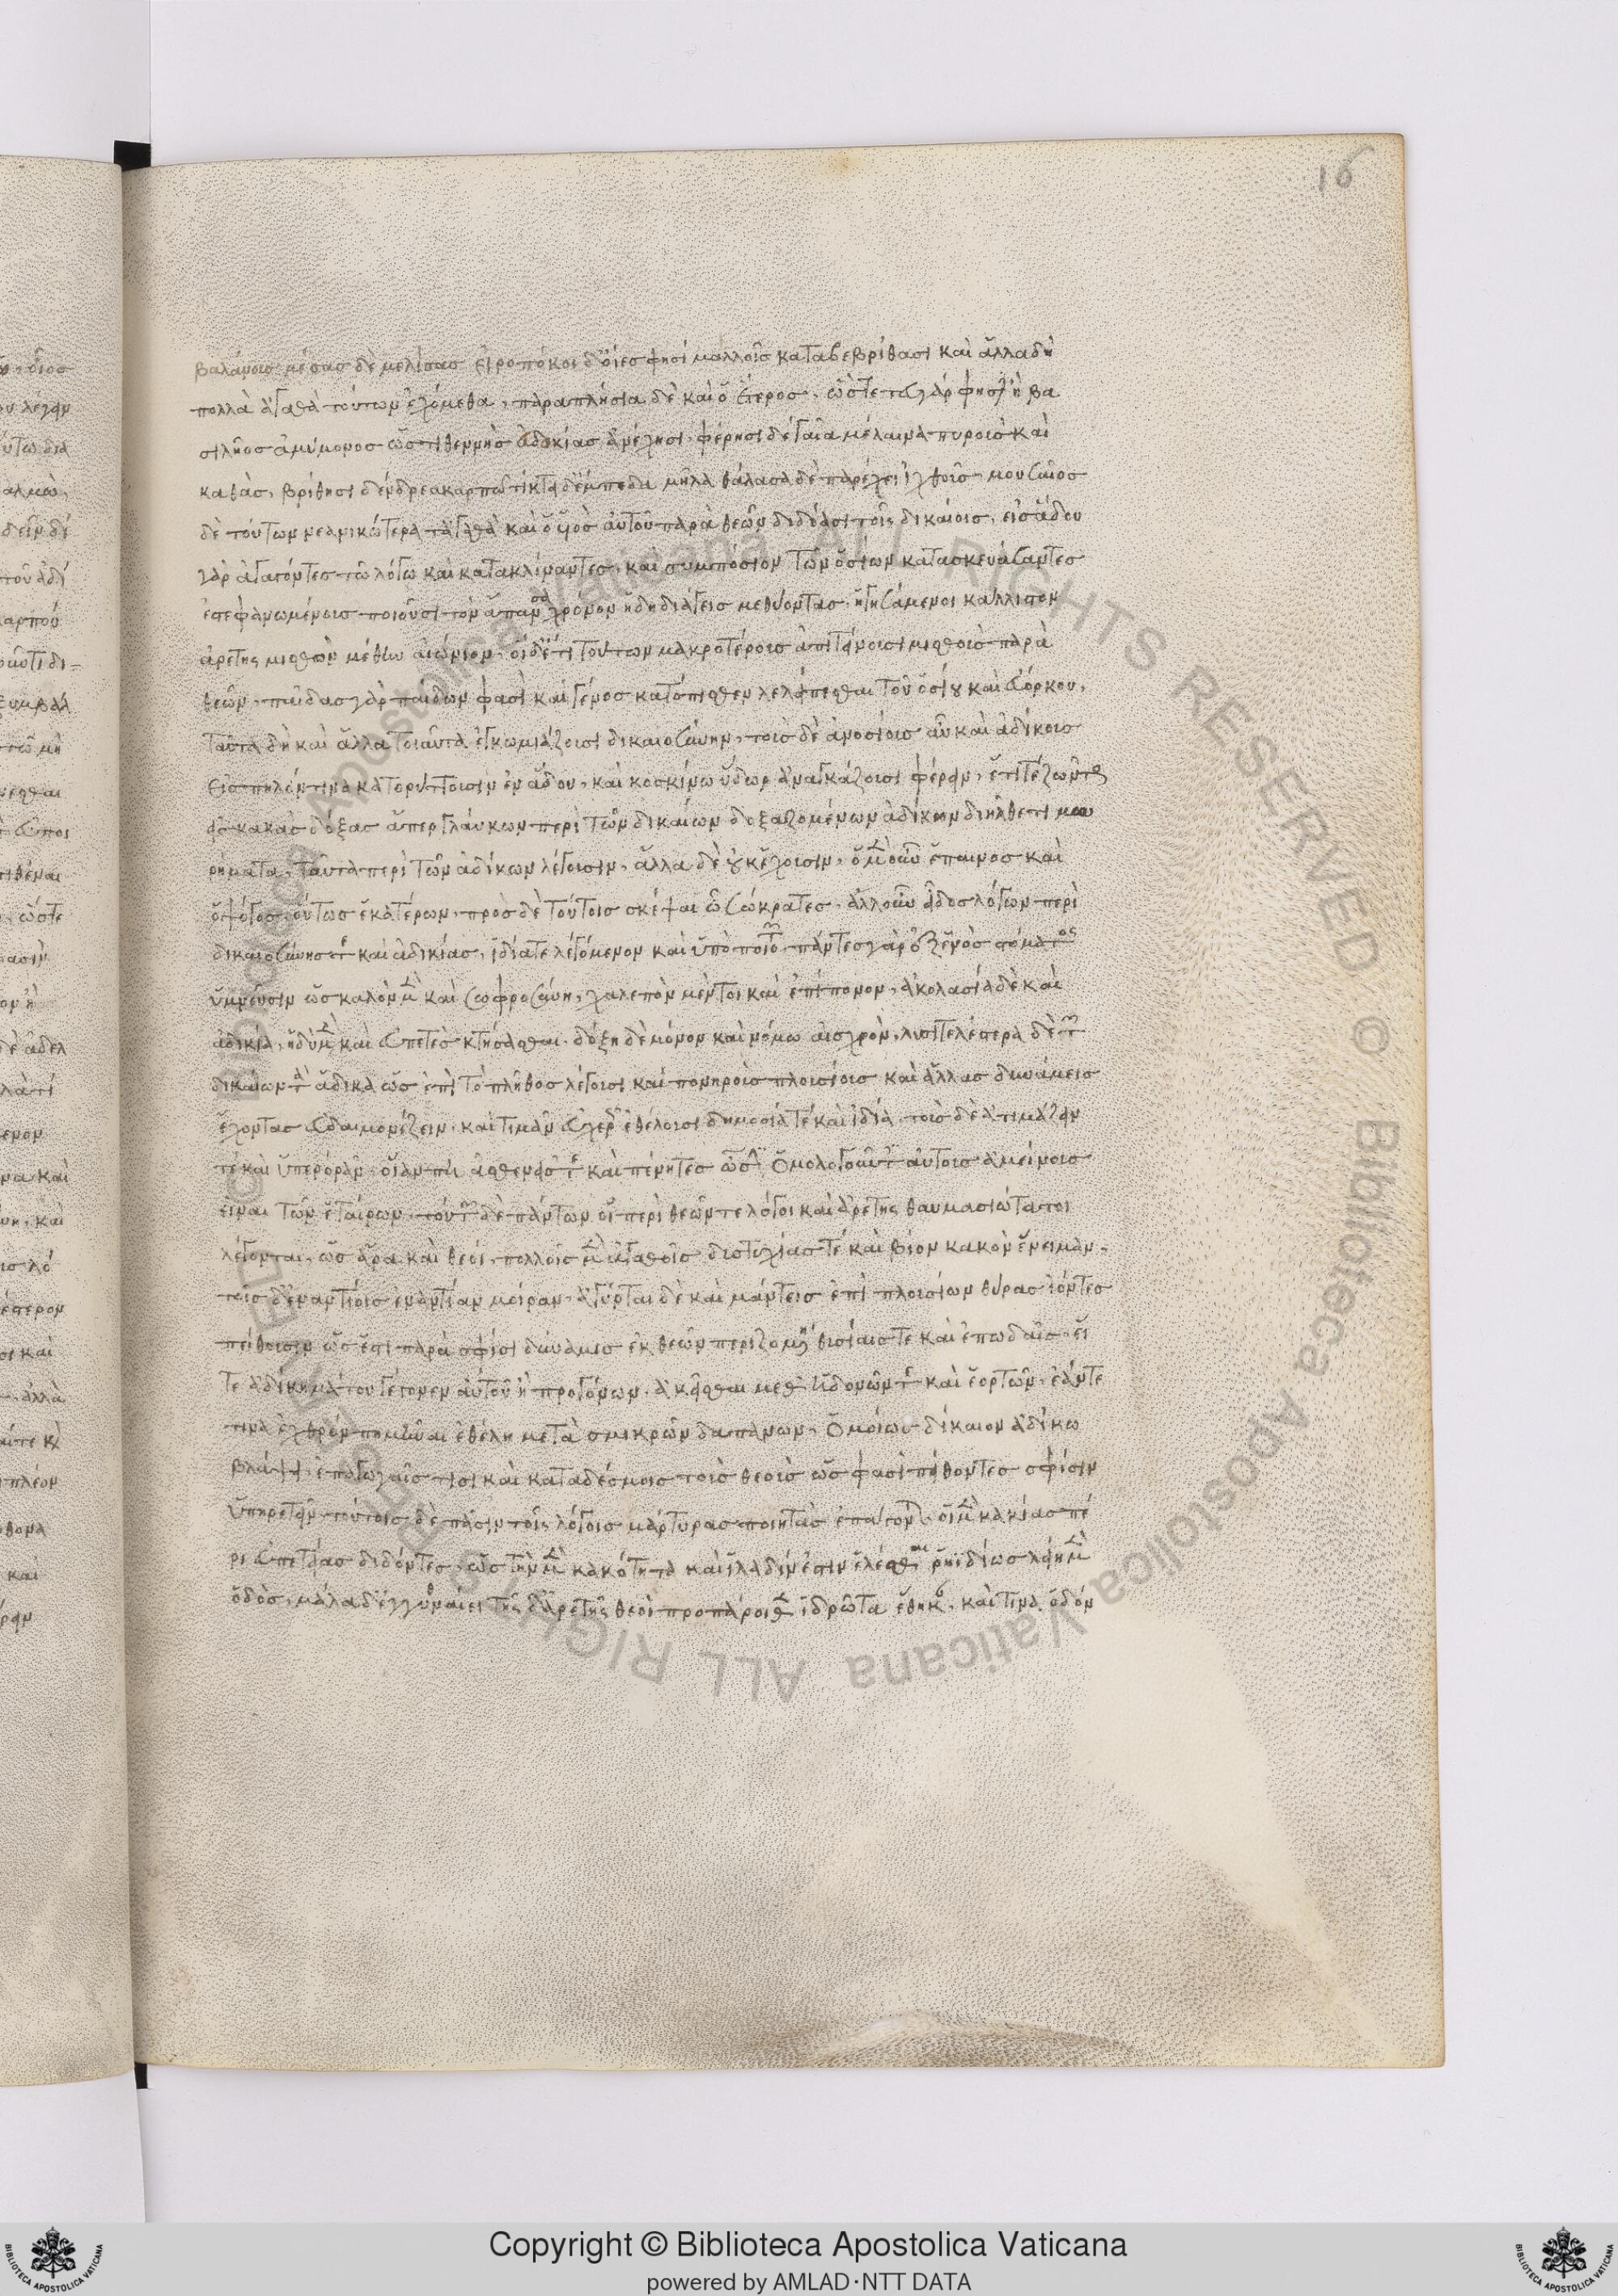 16
βαλάνους μέσας δὲ μελίσας εἰροπόκοι δ' ὄϊες φησὶ μαλλοῖς καταβεβρίθασι καὶ ἄλλα δὴ
πολλὰ ἀγαθὰ τούτων ἐχόμενα, παραπλήσια δὲ καὶ ὁ ἕτερος, ὥστε τευ γάρ φησιν ἢ βα
σιλῆος ἀμύμονος ὥστι θεουδὴς εὐδικίας ἀνέχησι, φέρησι δὲ γαῖα μέλαινα πυροὺς καὶ
κριθάς, βρίθησι δένδρεα καρπῶ τίκτη δ' ἔμπεδα μῆλα θάλασσα δὲ παρέχει ἰχθῦς μουσαῖος
δὲ τούτων νεανικώτερα τἀγαθὰ καὶ ὁ ὑὸς αὐτοῦ παρὰ θεῶν διδόασι τοῖς δικαίοις, εἰς ᾅδου
γὰρ ἀγαγόντες τῶ λόγω καὶ κατακλίναντες, καὶ συμπόσιον τῶν ὁσίων κατασκευάσαντες
ἐστεφανωμένους ποιοῦσι τὸν ἅπαντα χρόνον ἤδη διάγειν μεθύοντας ἡγησάμενοι κάλλιστον
ἀρετῆς μισθὸν μέθην αἰώνιον, οἱ δ' ἔτι τούτων μακροτέρους ἀποτείνουσι μισθοὺς παρὰ
θεῶν, παῖδας γὰρ παίδων φασὶ καὶ γένος κατόπισθεν λείπεσθαι τοῦ ὁσίου καὶ εὐόρκου,
ταῦτα δὴ καὶ ἄλλα τοιαῦτα ἐγκωμιάζουσι δικαιοσύνην, τοὺς δὲ ἀνοσίους αὖ καὶ ἀδίκους
εἰς πηλόν τινα κατορύττουσιν ἐν ᾅδου, καὶ κοσκίνω ὕδωρ ἀναγκάζουσι φέρειν, ἔτι τε ζῶντας
εἰς κακὰς δόξας ἅπερ γλαύκων περὶ τῶν δικαίων δοξαζομένων ἀδίκων διῆλθε τιμω
ρήματα, ταῦτα περὶ τῶν ἀδίκων λέγουσιν, ἄλλα δὲ οὐκ ἔχουσιν, ὁ μὲν οὖν ἔπαινος καὶ
ὁ ψόγος οὕτως ἑκατέρων, πρὸς δὲ τούτοις σκέψαι ὦ σώκρατες, ἄλλο αὖ εἶδος λόγων περὶ
δικαιοσύνης τε καὶ ἀδικίας, ἰδία τε λεγόμενον καὶ ὑπὸ ποιητῶν, πάντες γὰρ ἐξ ἑνὸς στόματος
ὑμνοῦσιν ὡς καλὸν μὲν καὶ σωφροσύνη, χαλεπὸν μέντοι καὶ ἐπίπονον, ἀκολασία δὲ καὶ
ἀδικία, ἡδὺ μὲν καὶ εὐπετὲς κτήσασθαι, δόξη δὲ μόνον καὶ νόμω αἰσχρόν, λυσιτελέστερα δὲ τῶν
δικαίων τὰ ἄδικα ὡς ἐπὶ τὸ πλῆθος λέγουσι καὶ πονηροὺς πλουσίους καὶ ἄλλας δυνάμεις
ἔχοντας εὐδαιμονίζειν, καὶ τιμᾶν εὐχερῶς ἐθέλουσι δημοσία τε καὶ ἰδία, τοὺς δὲ ἀτιμάζειν
τε καὶ ὑπερορᾶν, οἳ ἄν πη ἀσθενεῖς τε καὶ πένητες ὦσιν ὁμολογοῦντες αὐτοὺς ἀμείνους
εἶναι τῶν ἑταίρων, τούτων δὲ πάντων οἱ περὶ θεῶν τε λόγοι καὶ ἀρετῆς θαυμασιώτατοι
λέγονται, ὡς ἄρα καὶ θεοί, πολλοῖς μὲν ἀγαθοῖς δυστυχίας τὲ καὶ βίον κακὸν ἔνειμαν,
τοῖς δ' ἐναντίοις ἐναντίαν μοίραν, ἀγύρται δὲ καὶ μάντεις ἐπὶ πλουσίων θύρας ἰόντες
πείθουσιν ὡς ἔστι παρὰ σφίσι δύναμις ἐκ θεῶν ποριζομένη θυσίαις τε καὶ ἐπωδαῖς, εἴ
τε ἀδίκημά του γέγονεν αὐτοῦ ἢ προγόνων, ἀκεῖσθαι μεθ' ἡδονῶν τε καὶ ἑορτῶν, ἐάν τε
τινα ἐχθρὸν πημῆναι ἐθέλη μετὰ σμικρῶν δαπανῶν, ὁμοίως δίκαιον ἀδίκω
βλάψει, ἐπαγωγαῖς τισι καὶ καταδέσμοις τοὺς θεοὺς ὥς φασι πείθοντες σφίσιν
ὑπηρετεῖν, τούτοις δὲ πᾶσιν τοῖς λόγοις μάρτυρας ποιητὰς ἐπάγονται, οἱ μὲν κακίας πέ
ρι εὐπετείας διδόντες, ὡς τὴν μὲν κακότητα καὶ ἰλαδόν ἐστιν ἑλέσθαι ῥηϊδίως λείη μὲν
ὁδός, μάλα δ' ἐγγύθι ναίει τῆς δ' ἀρετῆς θεοὶ προπάροιθεν ἱδρῶτα ἔθηκαν, καί τινα ὁδόν
Copyright © Biblioteca Apostolica Vaticana
powered by AMLAD·NTT DATA